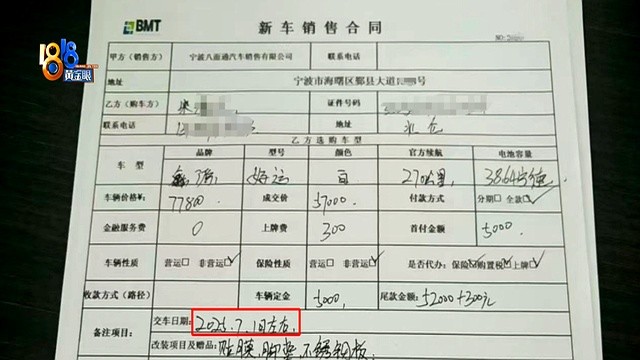 1818
黄金眼
BMT
新车销售合同
NO:
甲方（销售方） 宁波八面通汽车销售有限公司 联系电话
地址 宁波市海曙区鄞县大道 号
乙方（购车方） 证件号码
联系电话 地址
乙方选购车型
车 型 品牌 型号 颜色 官方续航 电池容量
好运 白 270公里
车辆价格¥: 77800 成交价 57000 付款方式 分期□ 全款☑
金融服务费 0 上牌费 300 首付金额 5000
车辆性质 营运□ 非营运☑ 保险性质 营运□ 非营运☑ 是否代办: 保险☑购置税☑上牌☑
收款方式（路径） 车辆定金 5000 尾款金额: 52000+300元
备注项目: 交车日期: 2025.7.1日左右
改装项目及赠品: 贴膜.脚垫.不锈钢板.